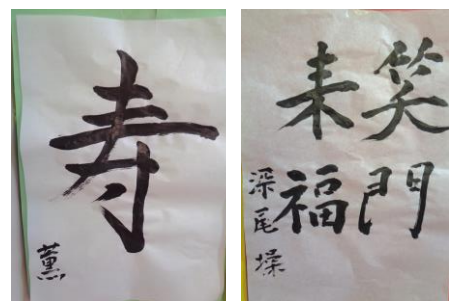 寿
薫
笑門
来福
深尾操